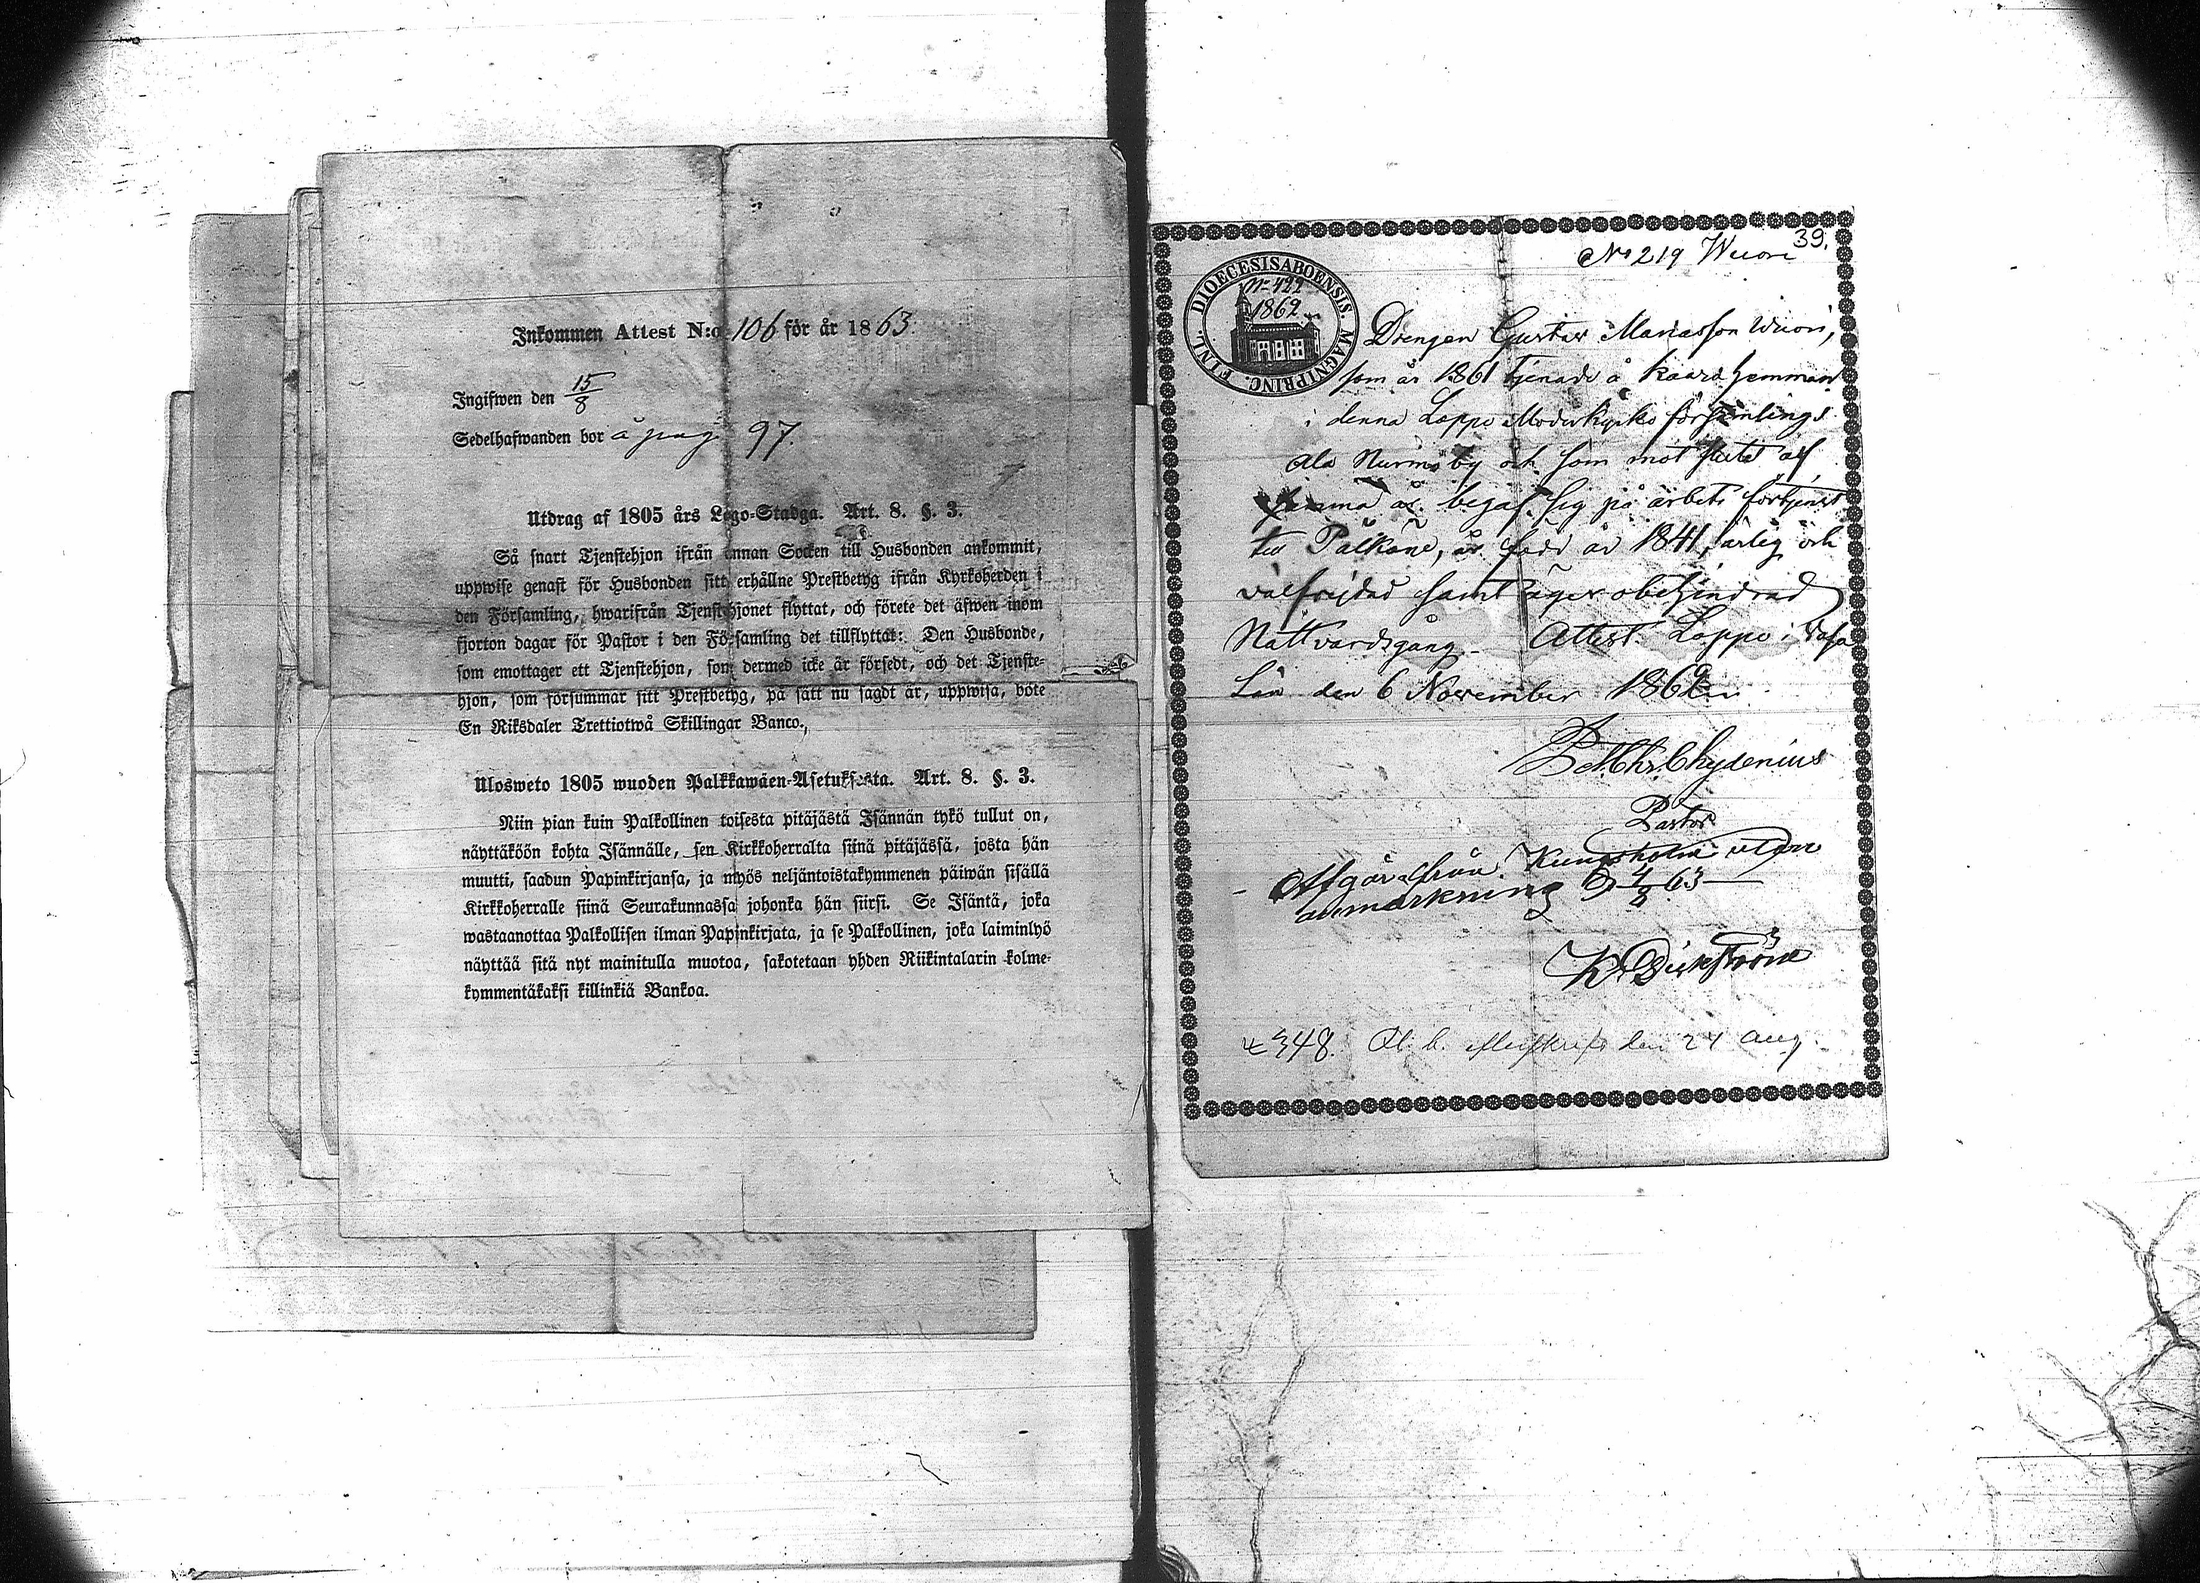 Inkommen Attest N:o 106 för år 1863.
Ingifwen den 15/8
Sedelhafwanden bor å pag 97.
Utdrag af 1805 års Lego-Stadga. Art. 8. §. 3.
Så snart Tjenstehjon ifrån annan Socken till Husbonden ankommit,
uppwise genast för Husbonden sitt erhållne Prestbetyg ifrån Kyrkoherden i
den Församling, hwarifrån Tjenstehjonet flyttat, och förete det äfwen inom
fjorton dagar för Pastor i den Församling det tillflyttat: Den Husbonde,
som emottager ett Tjenstehjon, som dermed icke är försedt, och det Tjenste-
hjon, som försummar sitt Prestbetyg, på sätt nu sagdt är, uppwisa, böte
En Riksdaler Trettiotwå Skillingar Banco.
Ulosweto 1805 wuoden Palkkawäen-Asetuksesta. Art. 8. §. 3.
Niin pian kuin Palkollinen toisesta pitäjästä Isännän tykö tullut on,
näyttäköön kohta Isännälle, sen Kirkkoherralta siinä pitäjässä, josta hän
muutti, saadun Papinkirjansa, ja myös neljäntoistakymmenen päiwän sisällä
Kirkkoherralle siinä Seurakunnassa johonka hän siirsi. Se Isäntä, joka
wastaanottaa Palkollisen ilman Papinkirjata, ja se Palkollinen, joka laiminlyö
näyttää sitä nyt mainitulla muotoa, sakotetaan yhden Riikintalarin kolme-
kymmentäkaksi killinkiä Bankoa.
39.
No 219 Wuori
DIOECESIS ABOENSIS. MAGNI PRINC. FINL.
No 422
1862
Drengen Gustav Mariasson Wuori,
som år 1861 tjenade å Kaara hemman
i denna Lappo Moderkyrko församlings
Ala Nurmo by och som mot slutet af
samma år begaf sig på arbets förtjenst
till Pälkäne, är född år 1841, ärlig och
välfrejdad samt äger obehindrad
Nattvardsgång. Attest. Lappo i Vasa
Län den 6 November 1862
Chydenius
Pastor
Afgår från Kungsholm utan
anmärkning D 4/8 63
348. den 24 Aug